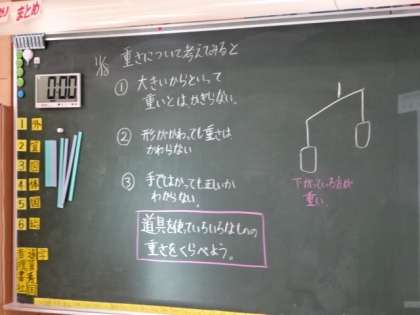 まとめ
0:00
1/18 重さについて考えてみると
① 大きいからといって
重いとはかぎらない。
② 形がかわっても重さは
かわらない
③ 手ではかっても正しいか
わからない。
道具を使っていろいろなものの
重さをくらべよう。
下がっている方が
重い。
1 外
2
3
4
5 国
6